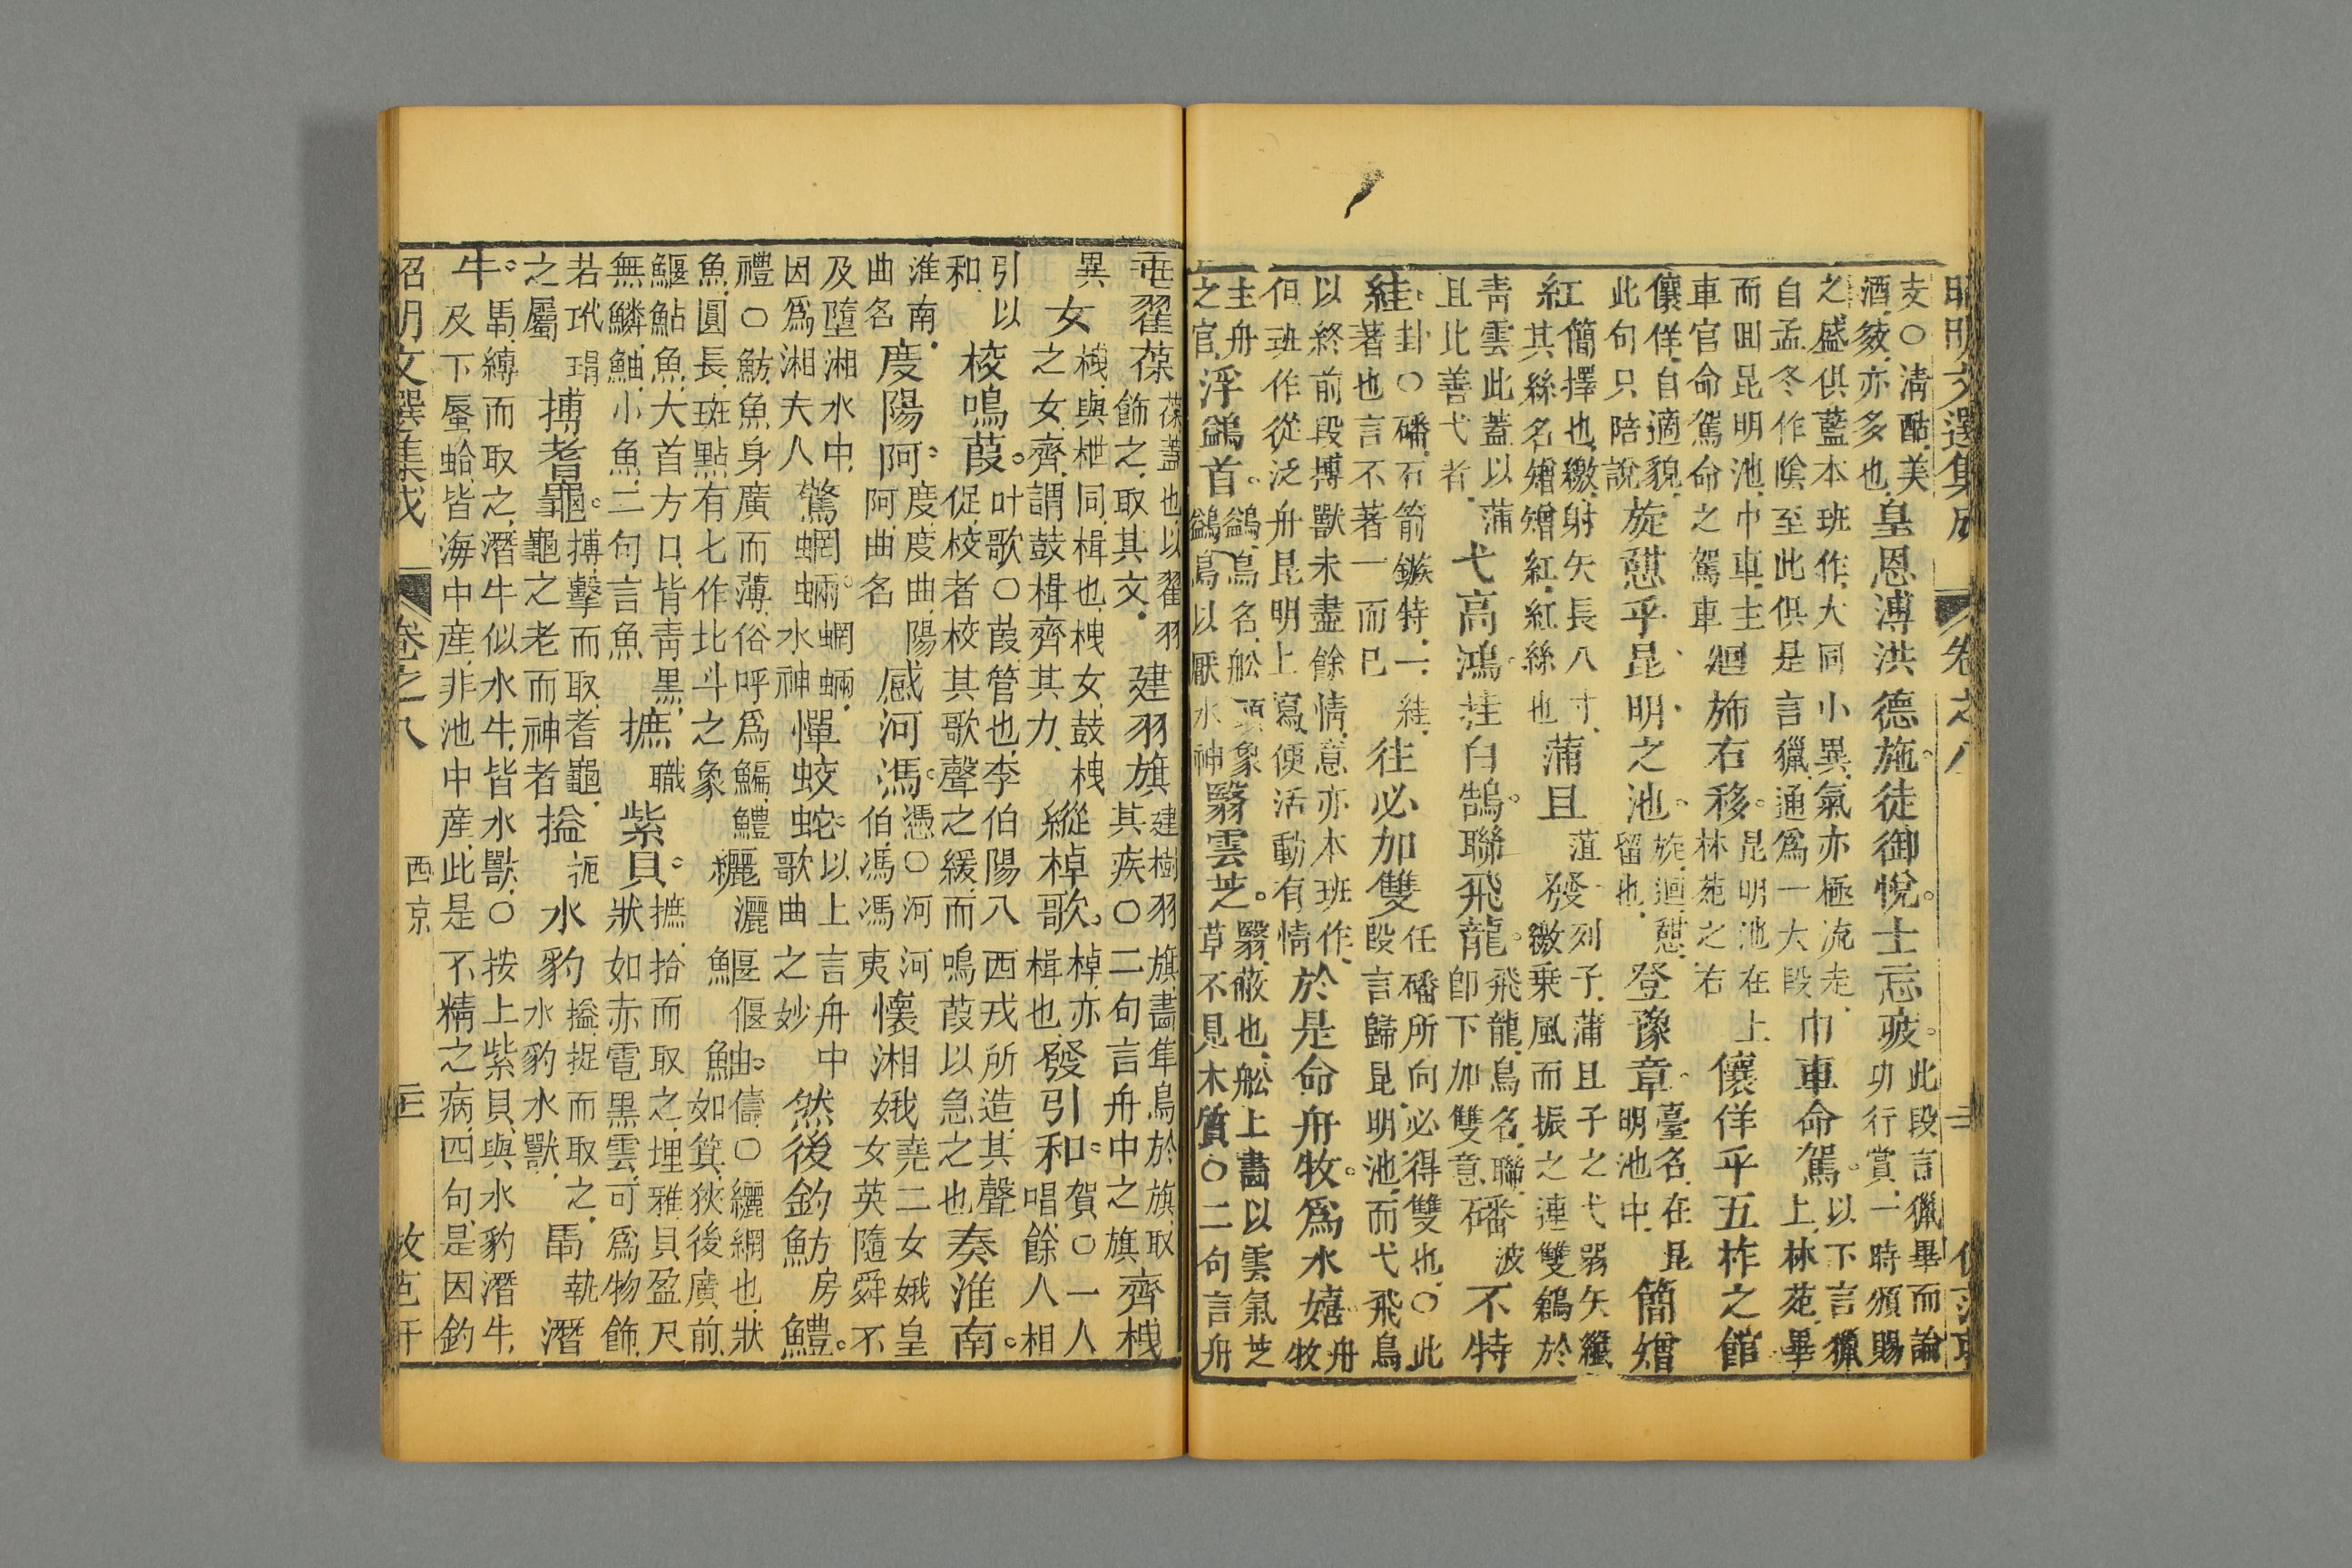 昭明文選集成 卷之八
支○清酤美
酒夥亦多也
皇恩溥洪德施。徒御悅。士忘疲。
此段言獵畢而論
功行賞一時頒賜
之盛俱藍本班作大同小異氣亦極流走
自孟冬作陰至此俱是言獵通爲一大段
巾車命駕。
以下言獵
上林苑畢
而囬昆明池巾車主
車官命駕命之駕車
迴斾右移。
昆明池在上
林苑之右
儴佯乎五柞之館
儴佯自適貌
此句只陪說
旋憇乎昆明之池。
旋迴憇
留也
登豫章。
臺名在昆
明池中
簡矰
紅
簡擇也繳射矢長八寸
其絲名矰矰紅紅絲也
蒲且
菹
發
列子蒲且子之弋弱矢纖
繳乗風而振之連雙鶬於
青雲此蓋以蒲
且比善弋者
弋高鴻。挂白鵠。聯飛龍。
飛龍鳥名聯
卽下加雙意
磻
波
不特
絓。
卦○磻石箭鏃特一絓
著也言不著一而已
往必加雙
任磻所向必得雙也○此
段言歸昆明池而弋飛鳥
以終前段搏獸未盡餘情意亦本班作
但班作從泛舟昆明上寫便活動有情
於是命舟牧。爲水嬉。
舟
牧
主舟
之官
浮鷁首。
鷁鳥名舩頭象
鷁鳥以厭水神
翳雲芝。
翳蔽也舩上畫以雲氣芝
草不見木質○二句言舟
垂翟葆
葆蓋也以翟羽
飾之取其文
建羽旗
建樹羽旗畫隼鳥於旗取
其疾○二句言舟中之旗
齊栧
異
女
栧與枻同楫也栧女鼓栧
之女齊謂鼓楫齊其力
縱棹歌。
棹亦
楫也
發引和。
賀○一人
唱餘人相
引以
和
校鳴葭。
叶歌○葭管也李伯陽八西戎所造其聲
促校者校其歌聲之緩而鳴葭以急之也
奏淮南。
淮南
曲名
度陽阿。
度度曲陽
阿曲名
感河馮。
憑○河河
伯馮馮夷
懷湘娥
堯二女娥皇
女英隨舜不
及墮湘水中
因爲湘夫人
驚蝄蜽。
蝄蜽
水神
憚蛟蛇。
以上言舟中
歌曲之妙
然後釣魴
房
鱧。
禮○魴魚身廣而薄俗呼爲鯿鱧
魚圓長斑點有七作北斗之象
纚
灑
鰋
偃
鮋。
儔○纚網也狀
如箕狹後廣前
鰋鮎魚大首方口皆青黑
無鱗鮋小魚二句言魚
摭
職
紫貝。
摭拾而取之埋雅貝盈尺
狀如赤電黑雲可爲物飾
若玳瑁
之屬
搏耆龜。
搏擊而取耆龜
龜之老而神者
搤
扼
水豹
搤捉而取之
水豹水獸
馽
執
潛
牛。
馽縛而取之潛牛似水牛皆水獸○按上紫貝與水豹潛牛
及下蜃蛤皆海中産非池中産此是不精之病四句是因釣
昭明文選集成 卷之八 西京